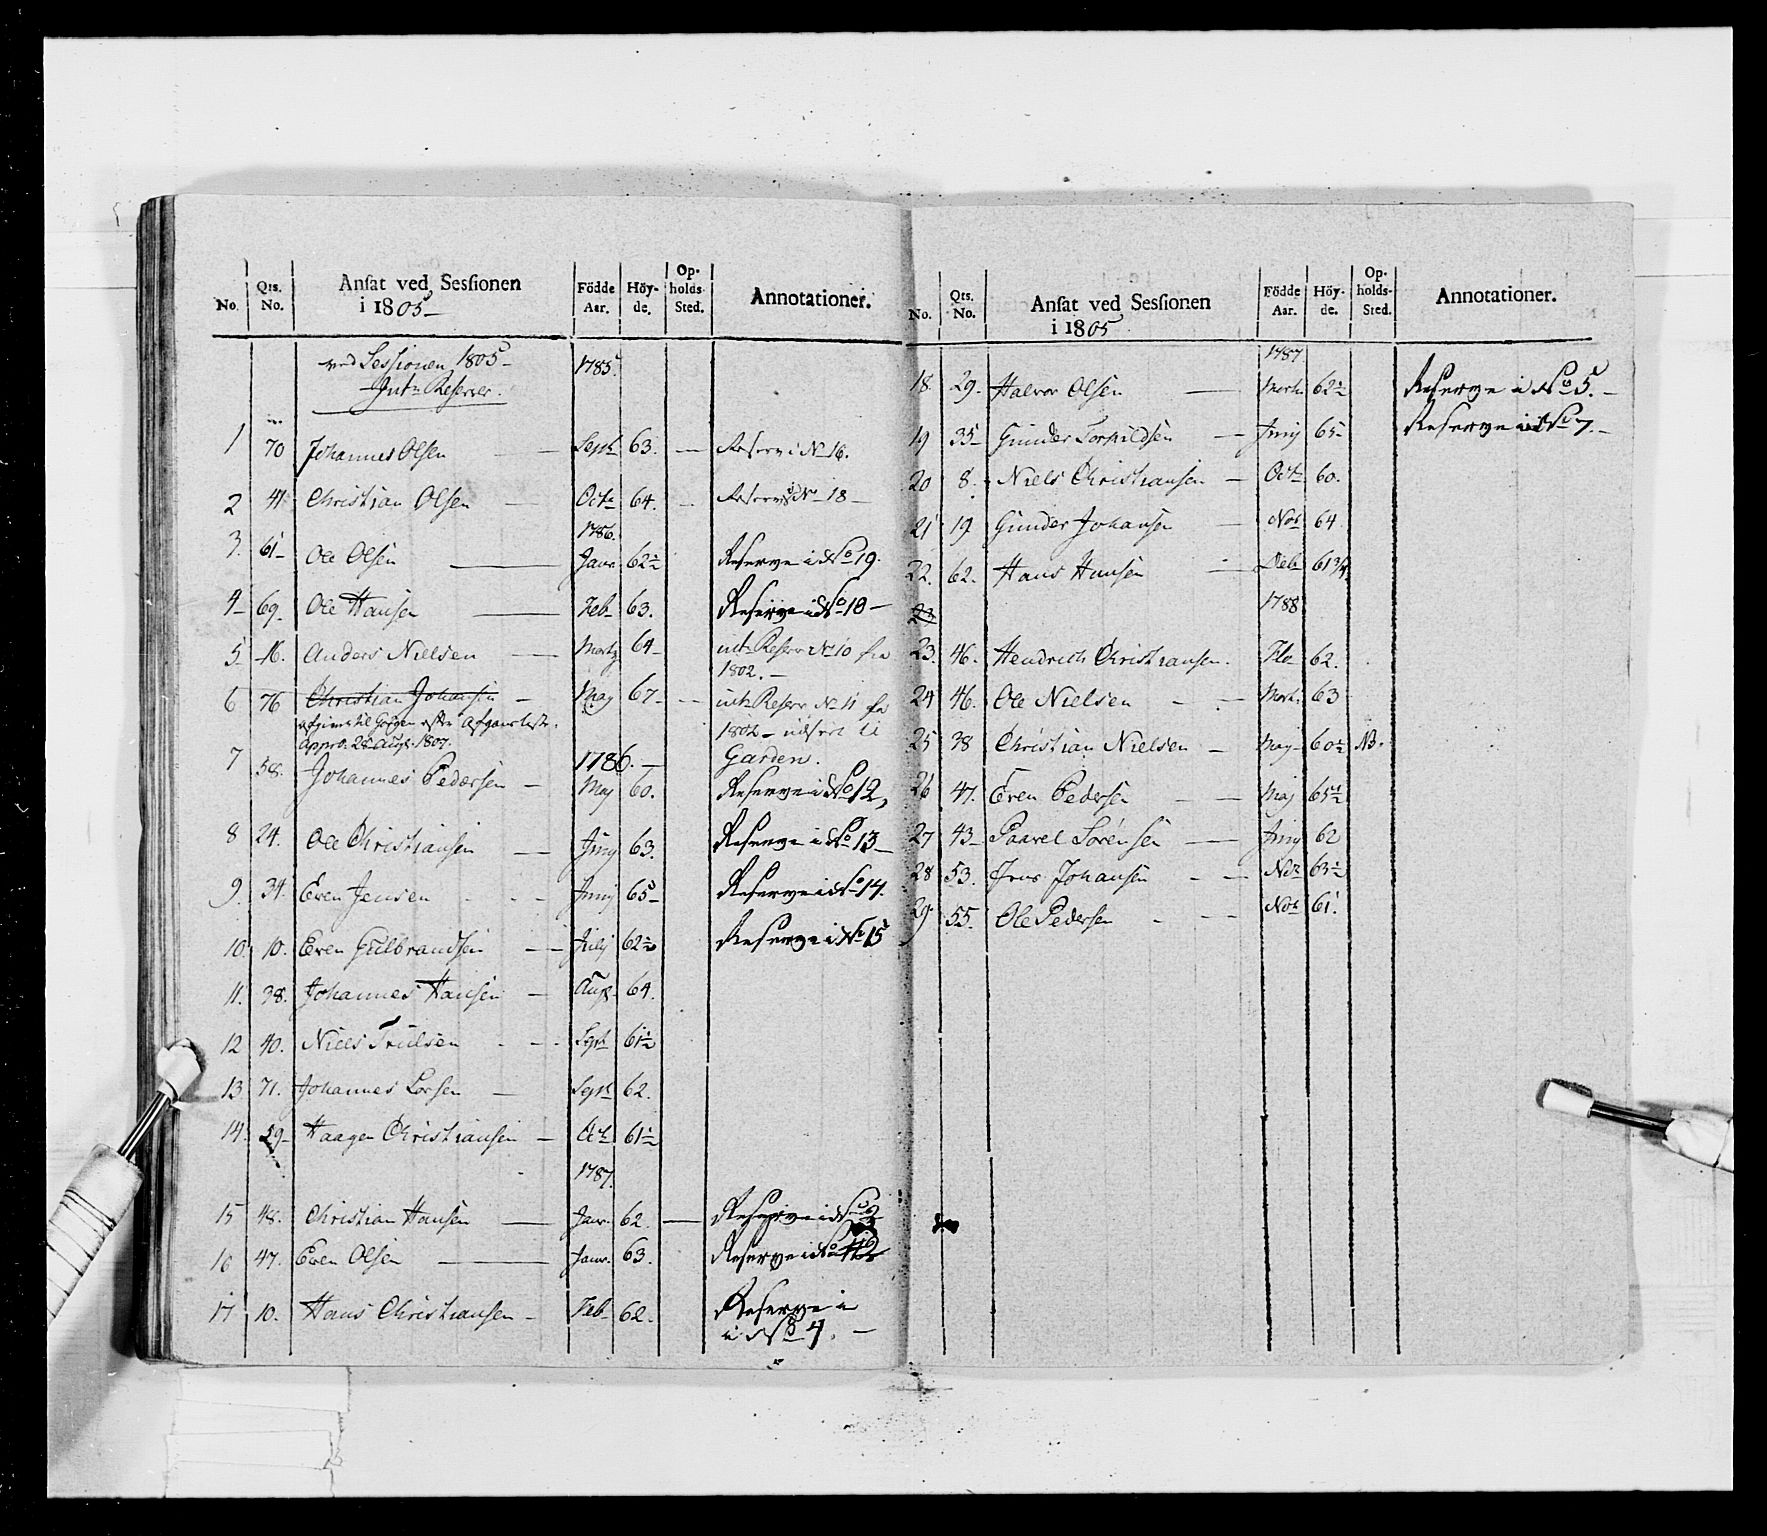 No. | Qts. No. | Ansat ved Sessionen i 1805 | Födde Aar. | Höyde. | Opholds-Sted. | Annotationer.
ved Sessionen 1805 | 1785.
Int: Reserver.
1 | 70 | Johannes Olsen | Sept: | 63. | — | Reserv i No 16.
2 | 41 | Christian Olsen | Oct: | 64. | — | Reserv i No 18 —
1786.
3. | 61 | Ole Olsen | Janr | 62½ | Reserve i No 19.
4 | 69 | Ole Hansen | Feb | 63. | Reserve i No 10 —
5 | 16. | Anders Nielsen | Martz | 64 | int: Reserv No 10 fra
1802. —
6 | 76 | Christian Johansen — | May | 67 | — | int: Reserv No 11 fra
1802 — udsert til
Garden.
Appro. 28 Augs. 1807.
1786. —
7 | 58. | Johannes Pedersen — | May | 60. | Reserve i No 12,
8 | 24. | Ole Christiansen | Juny | 63. | Reserve i No 13 —
9. | 34. | Even Jensen | Juny | 65 | Reserve i No 14.
10. | 10. | Even Gulbrandsen | July | 62½ | Reserve i No 15
11. | 38. | Johannes Hansen — | Augs. | 64.
12 | 40. | Niels Trulsen | Sept | 61½
13 | 71. | Johannes Larsen — | Sept | 62.
14. | 29 | Haagen Christiansen — | Oct | 61½
1787.
15 | 48. | Christian Hansen — | Janr. | 62. | — | Reserve i No 2
16 | 47. | Even Olsen — | Janr. | 63. | Reserve i No
17 | 10. | Hans Christiansen — | Feb | 62. | Reserve i
i No 4. —
No. | Qts. No. | Ansat ved Sessionen i 1805 | Födde Aar. | Höyde. | Opholds-Sted. | Annotationer.
1787
18. | 29. | Halvor Olsen — | Marti | 62½ | Reserve i No 5. —
19 | 35 | Gunder Torkildsen — | Juny | 65 | Reserve i No 7. —
20 | 8. | Niels Christiansen — | Oct: | 60.
21 | 19. | Gunder Johansen — | Nov | 64.
22. | 62. | Hans Hansen | Deb | 61¾
23 | 1788
23. | 46. | Hendrich Christiansen. | Feb | 62.
24 | 46. | Ole Nielsen | Marti | 63
25 | 38 | Christian Nielsen — | May | 60½ | NB.
26 | 47. | Even Pedersen | May | 65½
27 | 43 | Paavel Sørensen — | Juny | 62
28 | 53. | Jens Johansen | Nov | 63½
29. | 55. | Ole Pedersen | Nov | 61.